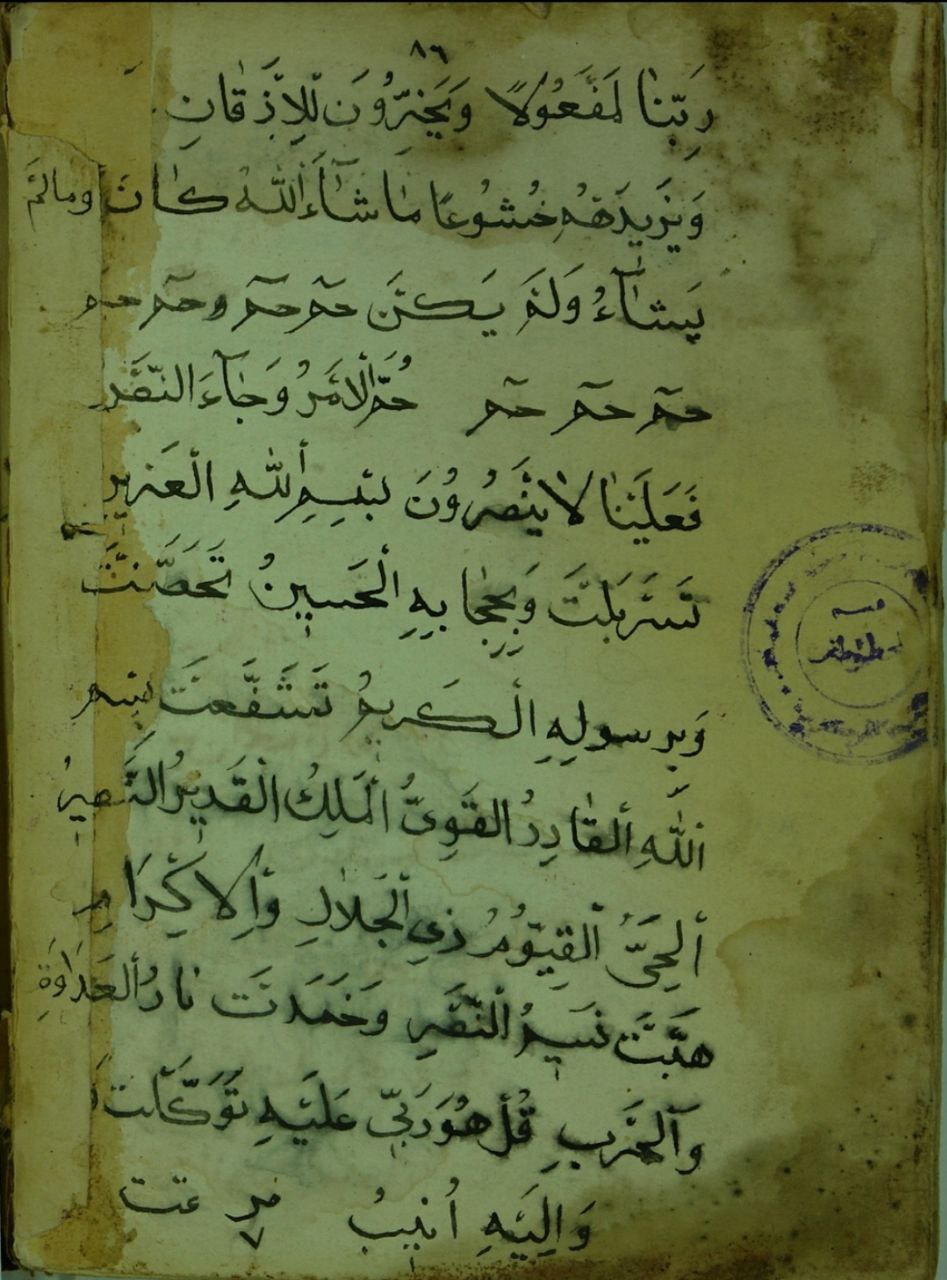 ٨٦
رَبِّنَا لَمَفْعُولًا وَيَخِرُّونَ لِلْاِذْقَانِ
وَيَزِيدُهُمْ خُشُوعًا مَا شَاءَ اللهُ كَانَ وما لَمْ
يَشَآءُ وَلَمْ يَكُنْ حٓم حٓم وحٓم حٓم
حٓم حٓم حٓم حُمَّ الْاَمْرُ وَجَآءَ النَّصْرُ
فَعَلَيْنَا لَا يُنْصَرُونَ بِسْمِ اللهِ الْعَزِيزِ
تَسَرْبَلْتُ وَبِحِجَابِهِ الْحَصِينُ تَحَصَّنْتُ
وَبِرسولِهِ الْكَرِيمُ تَشَفَّعْتُ بِسم
اللهِ الْقَادِرُ الْقَوِىُّ الْمَلِكُ الْقَدِيرُ النَّصِيرُ
الْحَىُّ الْقَيُّومُ ذِي الْجَلَالِ وَالْاِكْرَامِ
هَبَّتْ نَسِيمُ النَّصْرِ وَخَمَدَتْ نَارُ الْعَدَاوَةِ
وَالْحَرْبِ قُلْ هُوَ رَبِّي عَلَيْهِ تَوَكَّلْتُ
وَاِلَيْهِ اُنِيبُ تمت
قسم